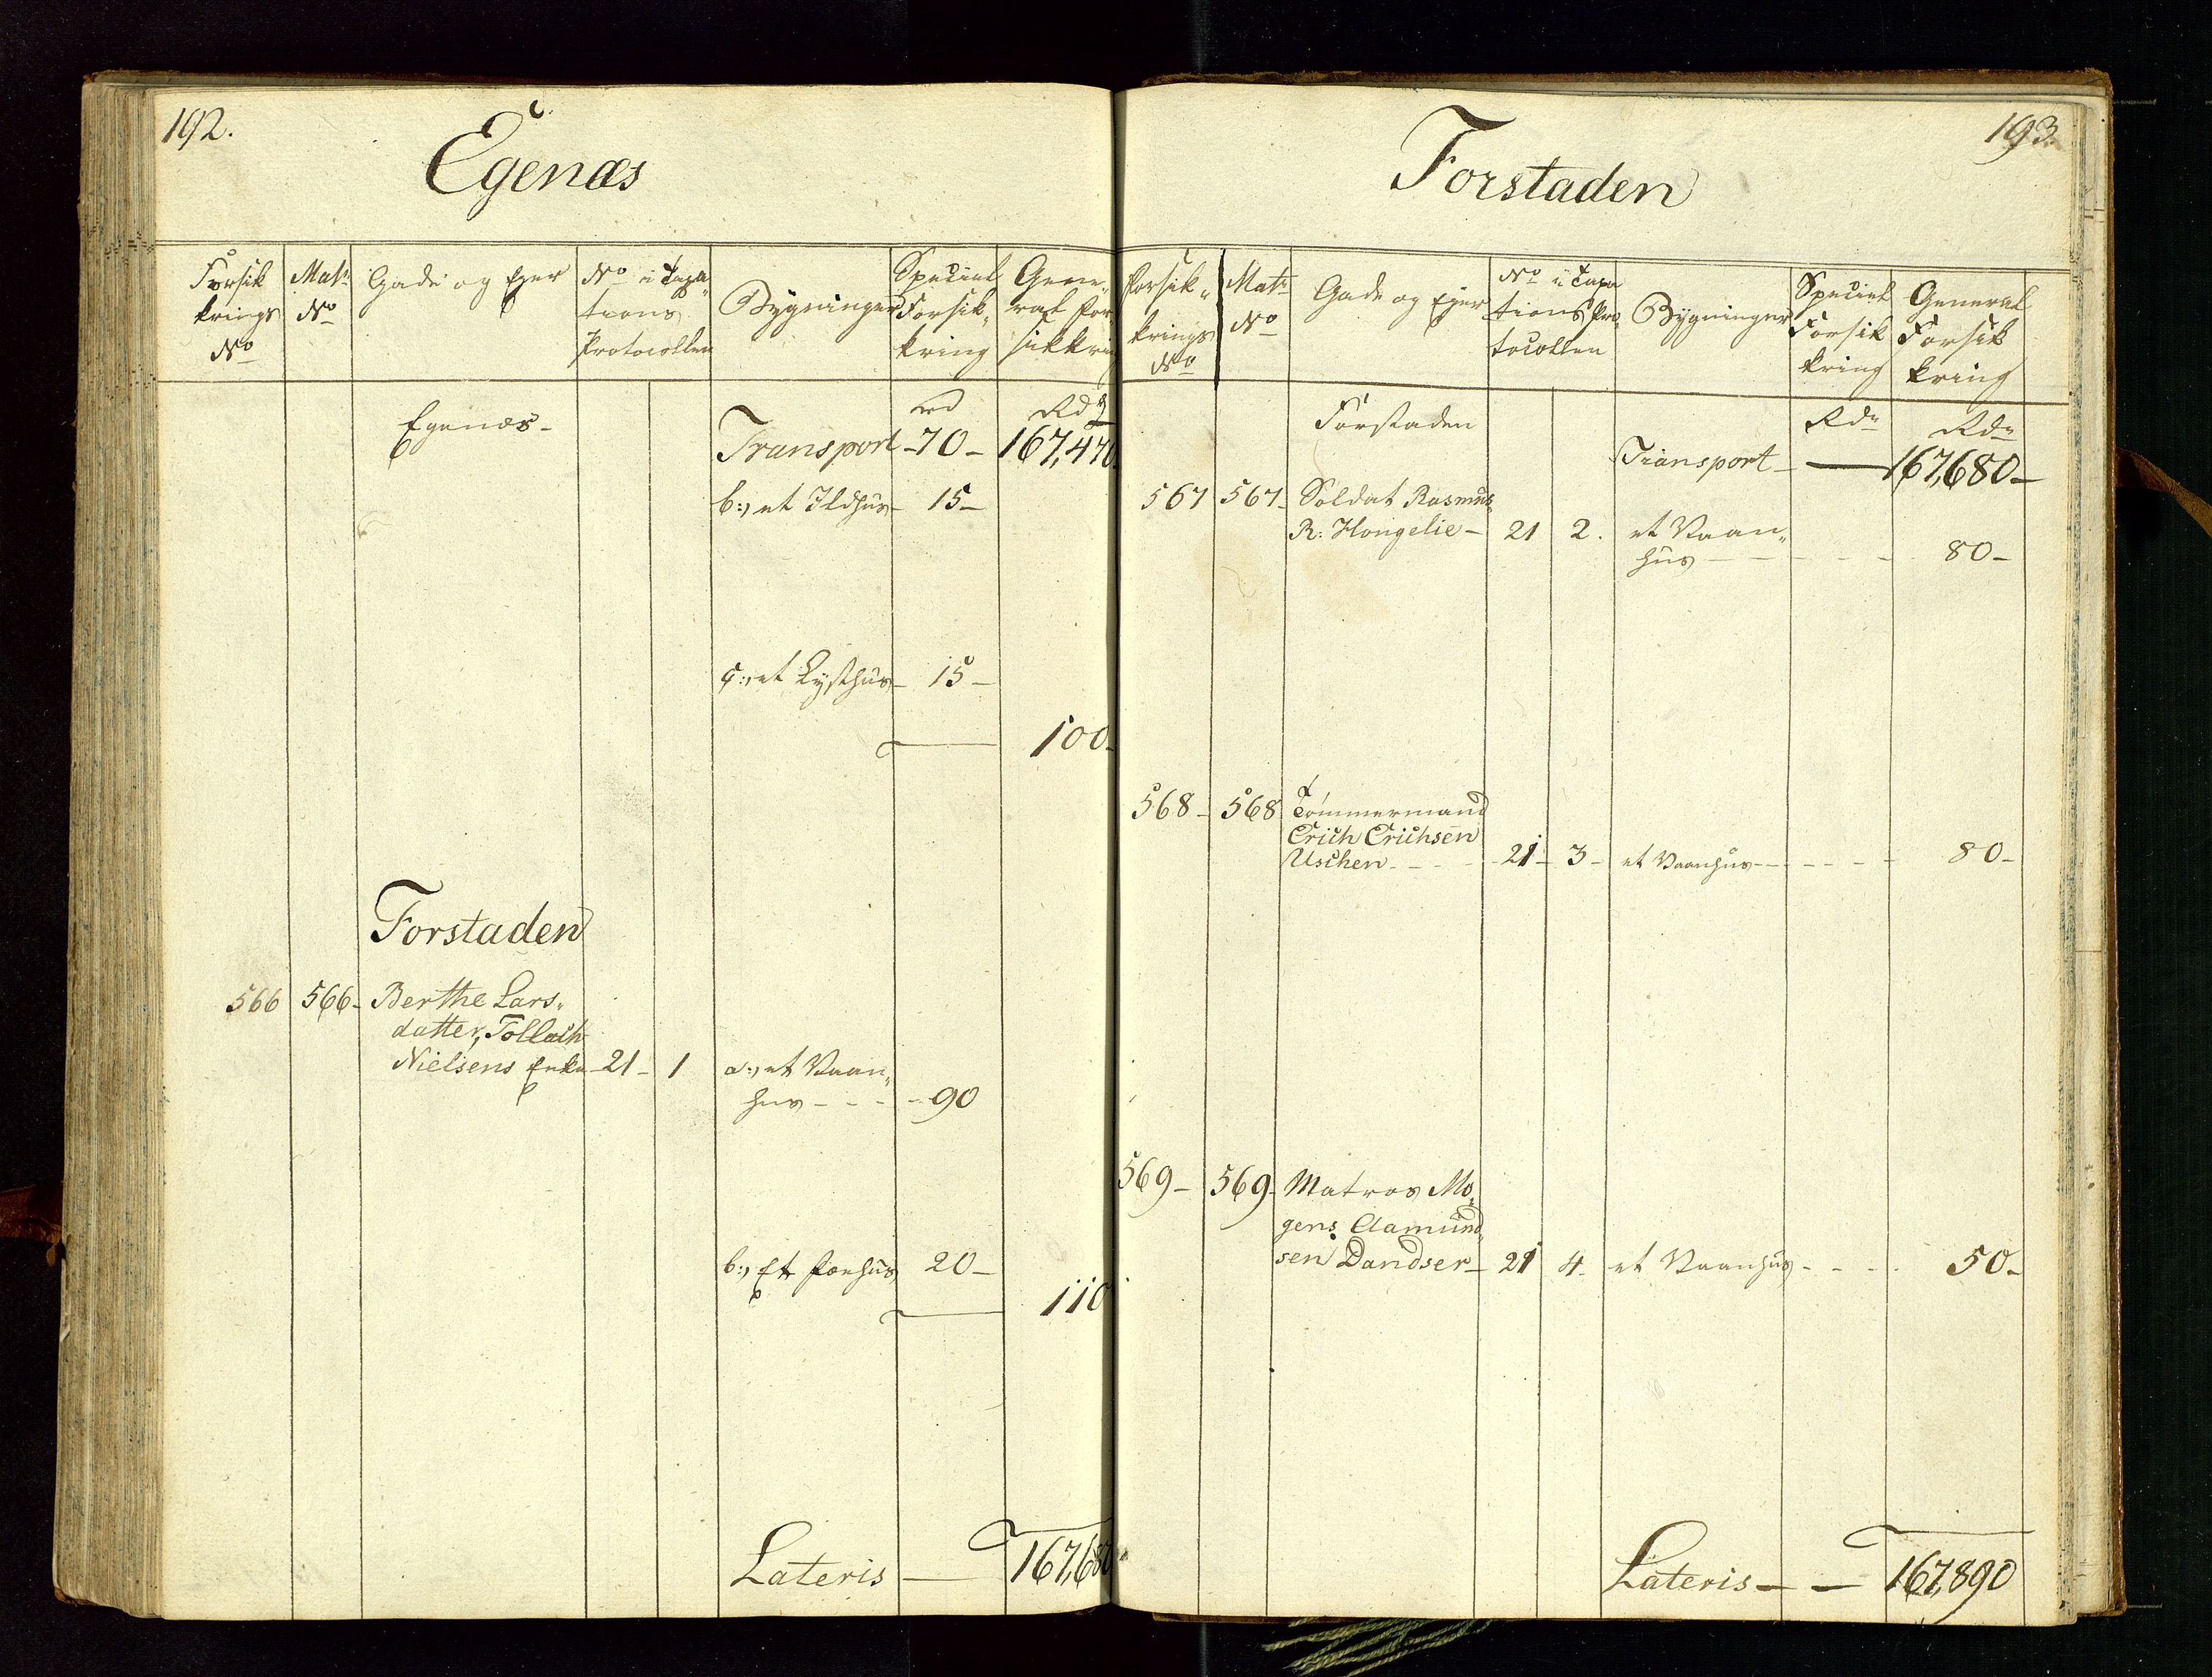 192.
Egenæs
Forsik
krings
No
Matr
No
Gade og Ejer
No i Taxa-
tions
Protocollen
Bygninger
Special
Forsik-
kring
Gene-
ral For-
sikkrin
Egenæs -
rd
Rdr
Transport - 70 - 167,470
b:, et Ildhus - 15 -
c:, et Lysthus - 15 -
100 -
Forstaden
566 566 - Berthe Lars-
datter, Tollach
Nielsens Enke - 21 - 1 a:, et Vaan-
hus - - - - 90
b:, Et Føehus 20 -
110
Lateris — 167,680
193.
Forstaden
Forsik-
krings
No
Matr
No
Gade og Ejer
No i Taxa
tions Pro-
tocollen
Bygninger
Special
Forsik
kring
General
Forsik
kring
Forstaden
Rdr Rdr
Transport - — 167,680 -
567 567 - Soldat Rasmus
R: Hongelie - 21 2. et Vaan-
hus - - - - 80 -
568 - 568 Tømmermand
Erich Erichsen
Uschen - - - 21 - 3 - et Vaanhus - - - - - 80 -
569 - 569 - Matros Mo-
gens Aamund-
sen Dandser - 21 4 - et Vaanhus - - - - 50 -
Lateris — — 167,890